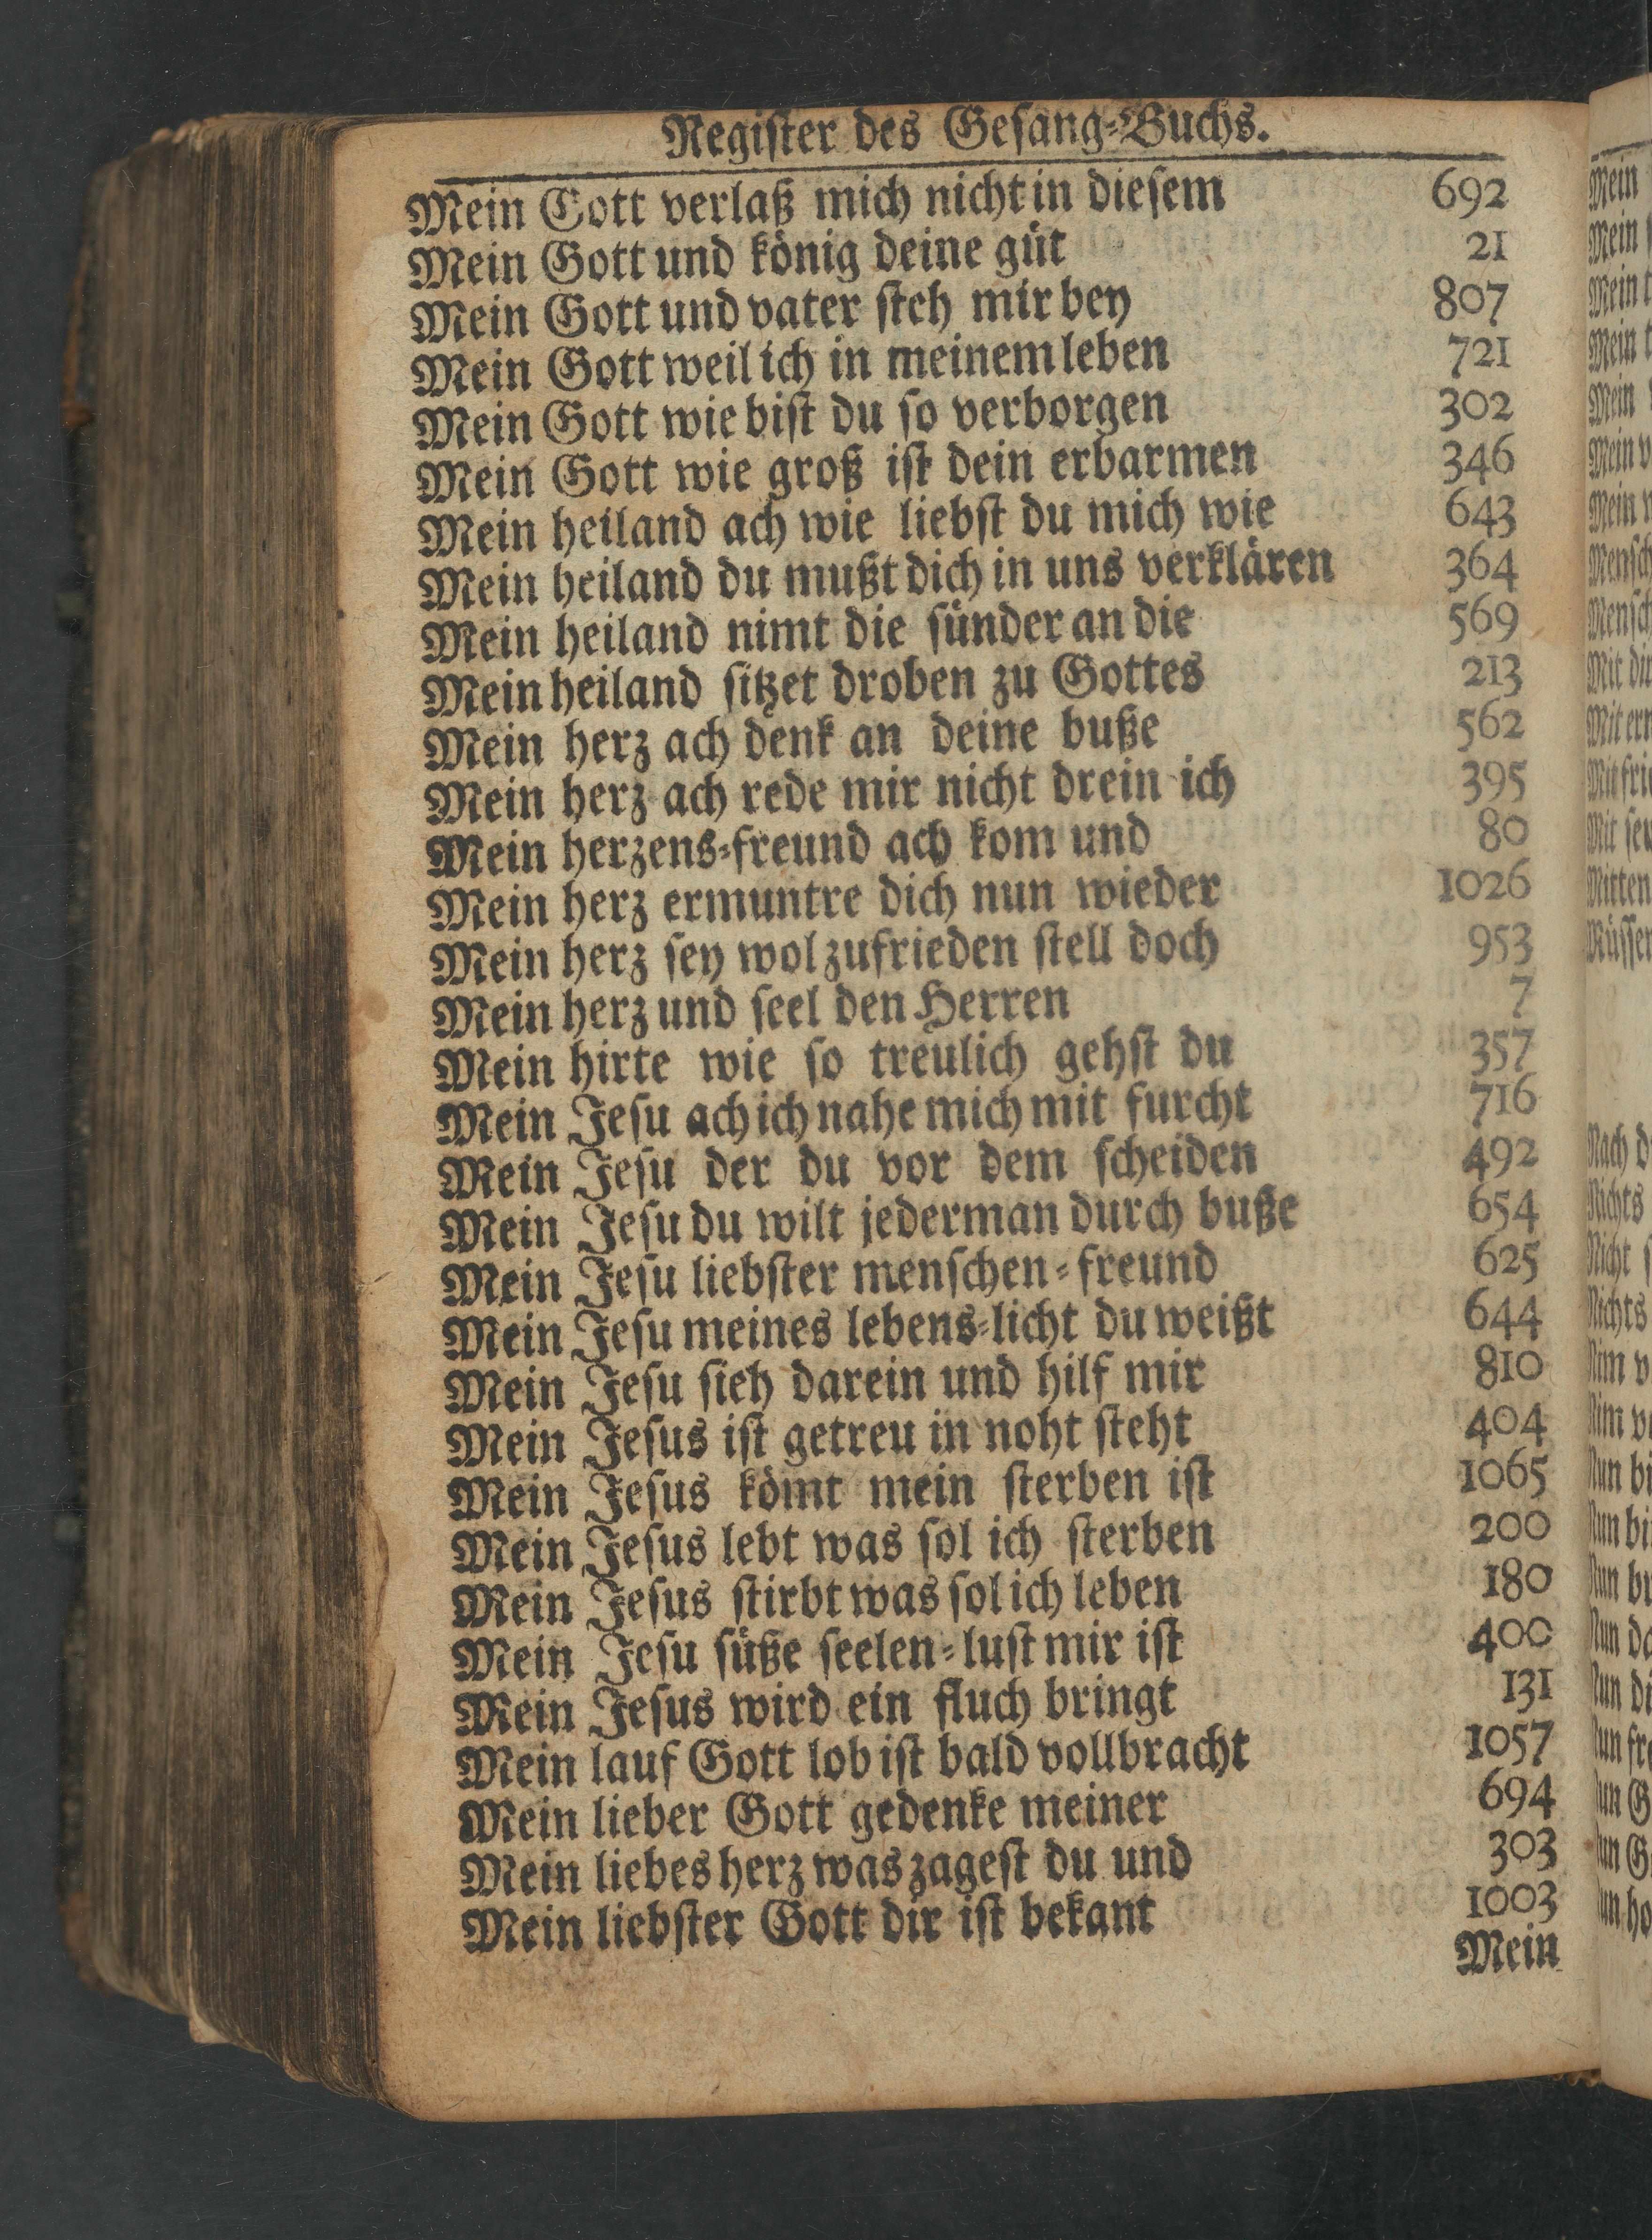 Register des Gesang-Buchs.
Mein Gott verlaß mich nicht in diesem 692
Mein Gott und könig deine güt 21
Mein Gott und vater steh mir bey 807
Mein Gott weil ich in meinem leben 721
Mein Gott wie bist du so verborgen 302
Mein Gott wie groß ist dein erbarmen 346
Mein heiland ach wie liebst du mich wie 643
Mein heiland du mußt dich in uns verklären 364
Mein heiland nimt die sünder an die 569
Mein heiland sitzet droben zu Gottes 213
Mein herz ach denk an deine buße 562
Mein herz ach rede mir nicht drein ich 395
Mein herzens-freund ach kom und 80
Mein herz ermuntre dich nun wieder 1026
Mein herz sey wol zufrieden stell doch 953
Mein herz und seel den Herren 7
Mein hirte wie so treulich gehst du 357
Mein Jesu ach ich nahe mich mit furcht 716
Mein Jesu der du vor dem scheiden 492
Mein Jesu du wilt jederman durch buße 654
Mein Jesu liebster menschen-freund 625
Mein Jesu meines lebens-licht du weißt 644
Mein Jesu sieh darein und hilf mir 810
Mein Jesus ist getreu in noht steht 404
Mein Jesus kömt mein sterben ist 1065
Mein Jesus lebt was sol ich sterben 200
Mein Jesus stirbt was sol ich leben 180
Mein Jesu süße seelen-lust mir ist 400
Mein Jesus wird ein fluch bringt 131
Mein lauf Gott lob ist bald vollbracht 1057
Mein lieber Gott gedenke meiner 694
Mein liebes herz was zagest du und 303
Mein liebster Gott dir ist bekant 1003
Mein
Mein
Mein
Mein
Mein
Mein
Mein
Mein
Mit
Mit
Mit
Mit
Mitten
Nach
Nichts
Nicht
Nichts